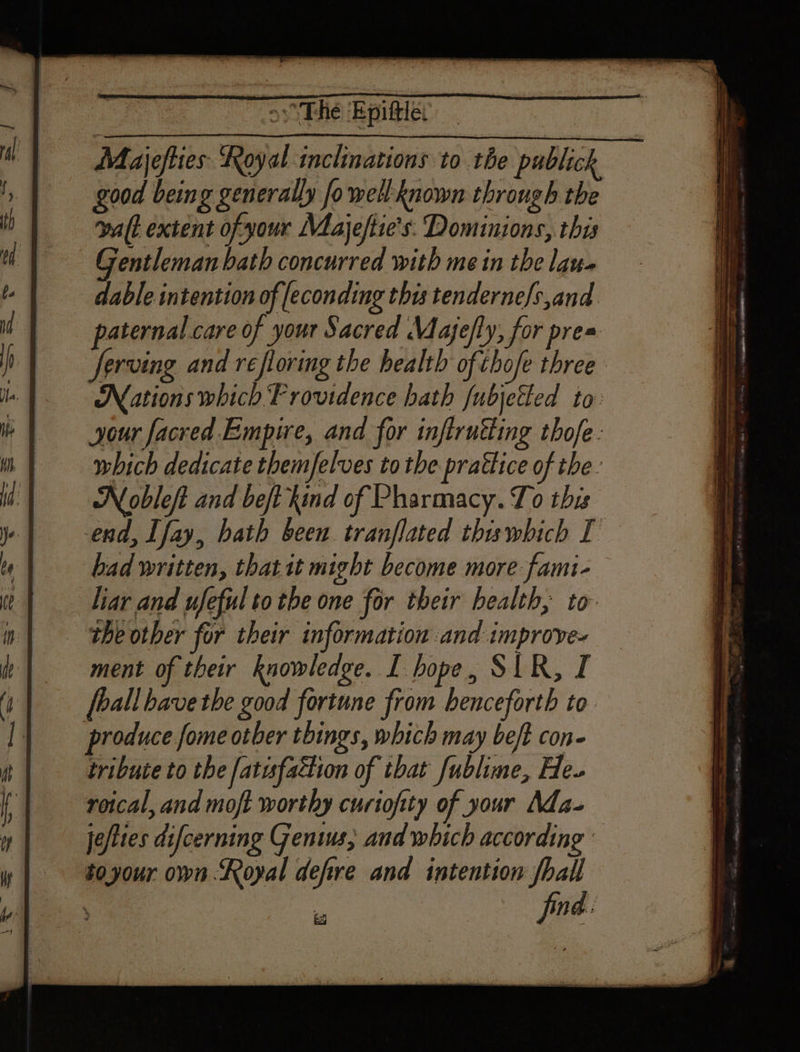 The Epiſtle.
Majeſties Royal inclinations to the publick
good being generally ſo well known through the
vaſt extent of your Majeſtie's Dominions, this
Gentleman hath concurred with me in the lau-
dable intention of ſeconding this tenderneſs, and
paternal care of your Sacred Majeſty, for pre-
ſerving and reſtoring the health of thoſe three
Nations which Providence hath ſubjected to
your ſacred Empire, and for inſtructing thoſe
which dedicate themſelves to the practice of the
Nobleſt and beſt kind of Pharmacy. To this
end, I ſay, hath been tranſlated this which I
had written, that it might become more fami-
liar and uſeful to the one for their health, to
the other for their information and improve-
ment of their knowledge. I hope, SIR, I
ſhall have the good fortune from henceforth to
produce ſome other things, which may beſt con-
tribute to the ſatisfaction of that ſublime, He-
roical, and moſt worthy curioſity of your Ma-
jeſties diſcerning Genius, and which according
to your own Royal deſire and intention ſhall
find